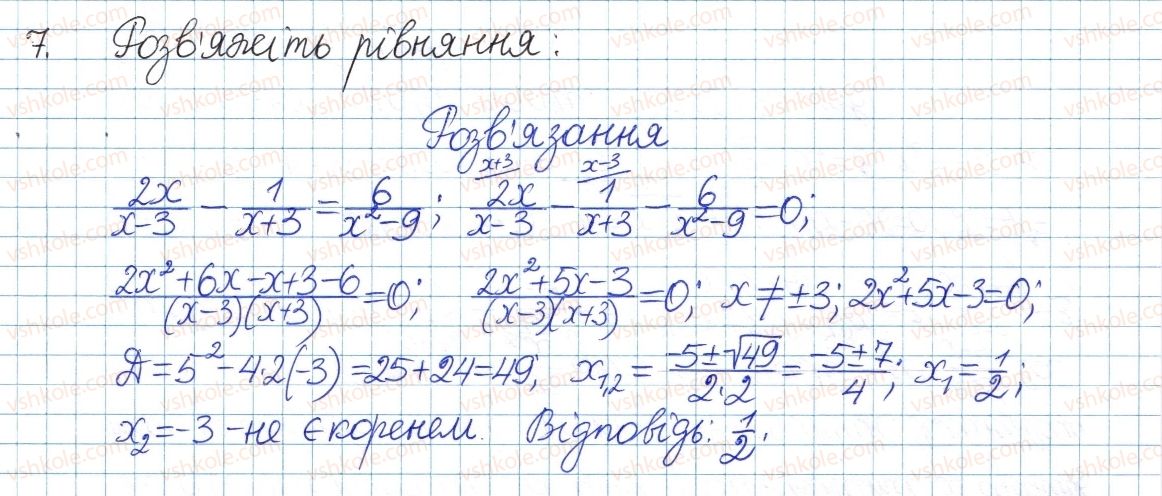 7. Розв'яжіть рівняння:
Розв'язання
2x/(x-3) - 1/(x+3) = 6/(x²-9); 2x/(x-3) (x+3) - 1/(x+3) (x-3) - 6/(x²-9) = 0;
(2x²+6x-x+3-6)/((x-3)(x+3)) = 0; (2x²+5x-3)/((x-3)(x+3)) = 0; x ≠ ±3; 2x²+5x-3=0;
Д = 5² - 4·2(-3) = 25+24 = 49; x₁,₂ = (-5±√49)/(2·2) = (-5±7)/4; x₁ = 1/2;
x₂ = -3 - не є коренем. Відповідь: 1/2.